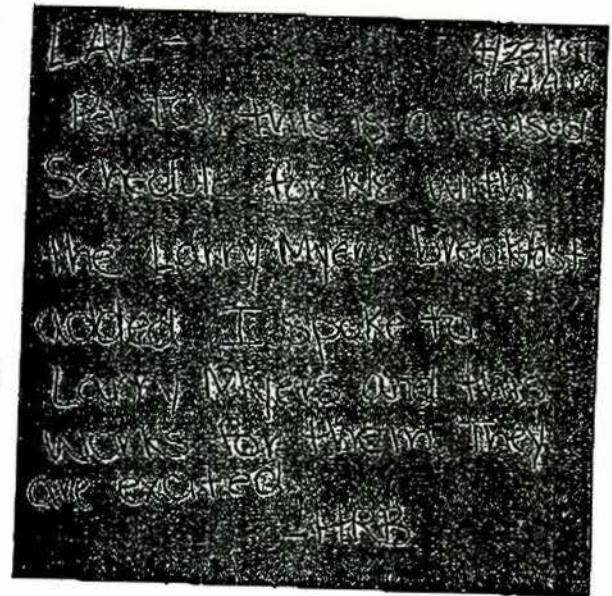 LAL -
Per TCJ, this is a revised
Schedule for NE with
the Larry Myers breakfast
added. I spoke to
Larry Myers and this
works for them. They
are excited.
- HRB